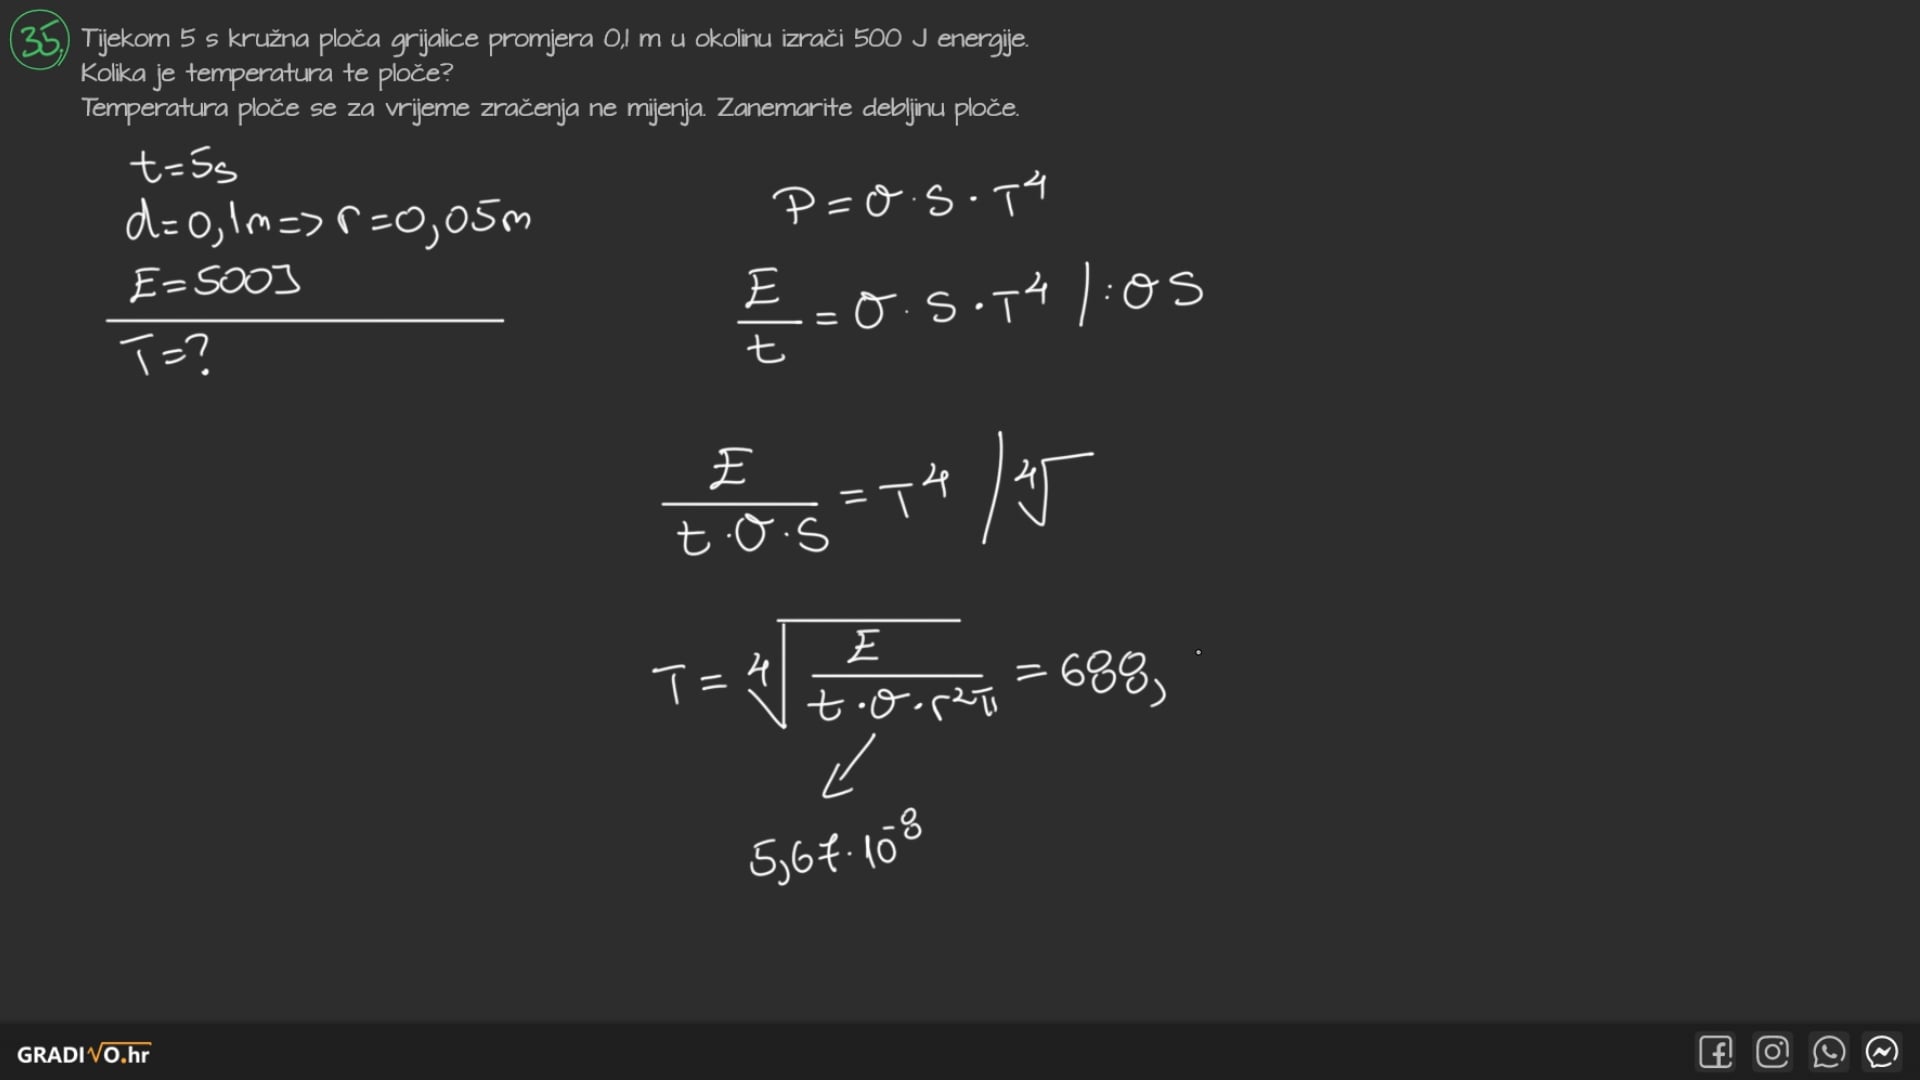 35. Tijekom 5 s kružna ploča grijalice promjera 0,1 m u okolinu izrači 500 J energije.
Kolika je temperatura te ploče?
Temperatura ploče se za vrijeme zračenja ne mijenja. Zanemarite debljinu ploče.
t=5s
d=0,1m=>r=0,05m
E=500J
T=?
P=σ·S·T⁴
E/t=σ·S·T⁴ /:σS
E/(t·σ·S)=T⁴ /⁴√
T=⁴√(E/(t·σ·r²π))=688,
5,67·10⁻⁸
GRADIVO.hr